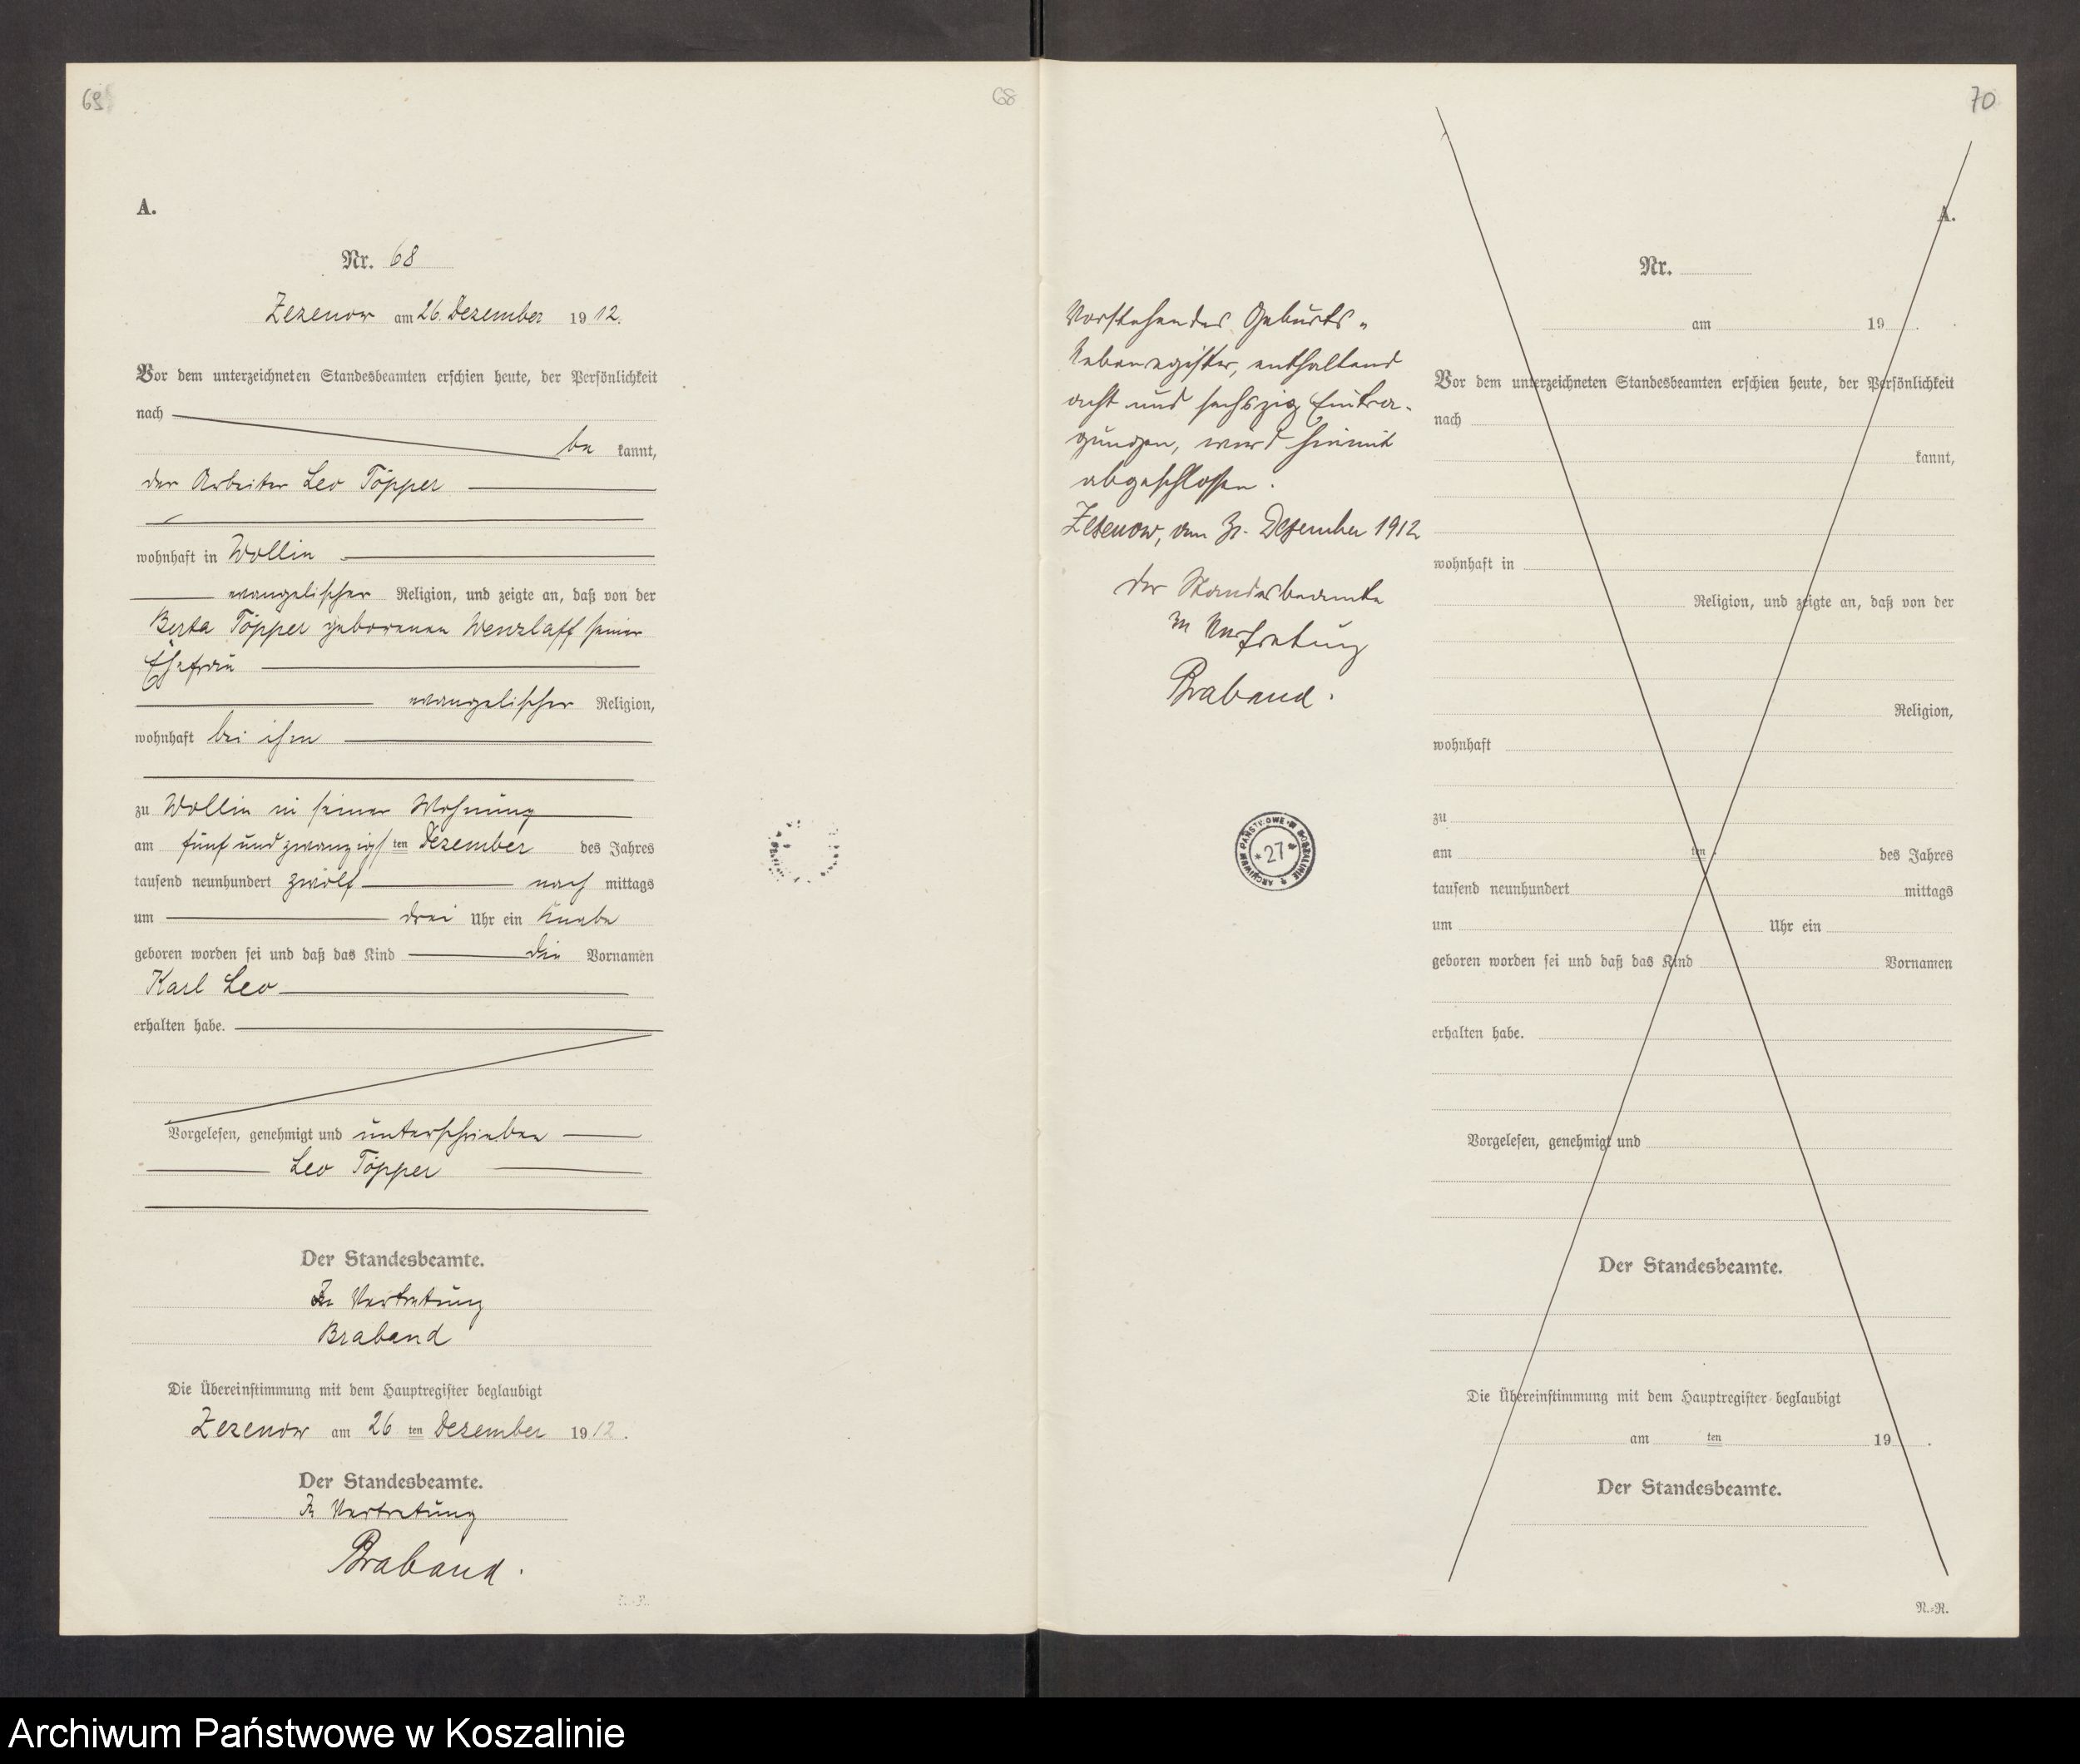 69
68
A.
Nr. 68
Zezenow am 26. Dezember 1912.
Vor dem unterzeichneten Standesbeamten erschien heute, der Persönlichkeit
nach
be kannt,
der Arbeiter Leo Töpper
wohnhaft in Wollin
evangelischer Religion, und zeigte an, daß von der
Berta Töpper geborenen Wenzlaff seiner
Ehefrau
evangelischer Religion,
wohnhaft bei ihm
zu Wollin in seiner Wohnung
am fünf und zwanzigs ten Dezember des Jahres
tausend neunhundert zwölf nach mittags
um drei Uhr ein Knabe
geboren worden sei und daß das Kind die Vornamen
Karl Leo
erhalten habe.
Vorgelesen, genehmigt und unterschrieben
Leo Töpper
Der Standesbeamte.
In Vertretung
Braband
Die Übereinstimmung mit dem Hauptregister beglaubigt
Zezenow am 26 ten Dezember 1912.
Der Standesbeamte.
In Vertretung
Braband.
70
Vorstehendes Geburts-
Nebenregister, enthaltend
acht und sechszig Eintra-
gungen, wird hiermit
abgeschlossen.
Zezenow, den 31. Dezember 1912
Der Standesbeamte
In Vertretung
Braband.
ARCHIWUM PAŃSTWOWE W KOSZALINIE
*27*
A.
Nr.
am 19 .
Vor dem unterzeichneten Standesbeamten erschien heute, der Persönlichkeit
nach
kannt,
wohnhaft in
Religion, und zeigte an, daß von der
Religion,
wohnhaft
zu
am ten des Jahres
tausend neunhundert mittags
um Uhr ein
geboren worden sei und daß das Kind Vornamen
erhalten habe.
Vorgelesen, genehmigt und
Der Standesbeamte.
Die Übereinstimmung mit dem Hauptregister beglaubigt
am ten 19 .
Der Standesbeamte.
N.=R.
Archiwum Państwowe w Koszalinie